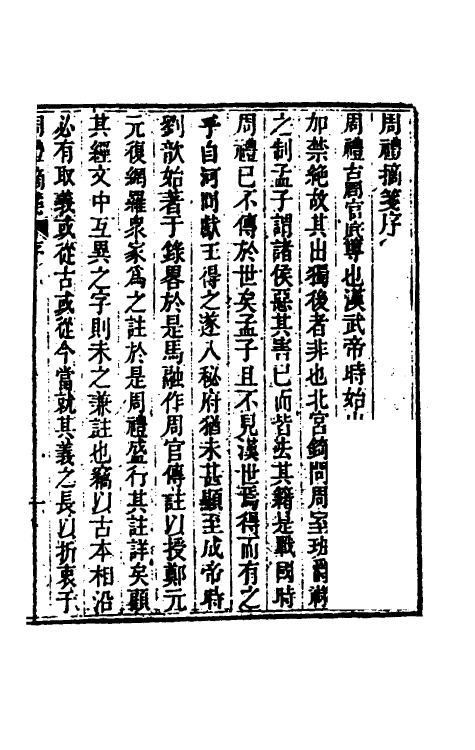 周禮摘箋序
周禮古周官底學也漢武帝時始出
加禁絶故其出獨後者非也北宮錡問周室班爵祿
之制孟子謂諸侯惡其害已而皆去其籍是戰國時
周禮已不傳於世矣孟子且不見漢世焉得而有之
乎自河間獻王得之遂入秘府猶未甚顯至成帝時
劉歆始著于錄畧於是馬融作周官傳註以授鄭元
元復網羅衆家爲之註於是周禮盛行其註詳矣顧
其經文中互異之字則未之兼註也竊以古本相沿
必有取義或從古或從今當就其義之長以折衷于
周禮摘箋 序 一